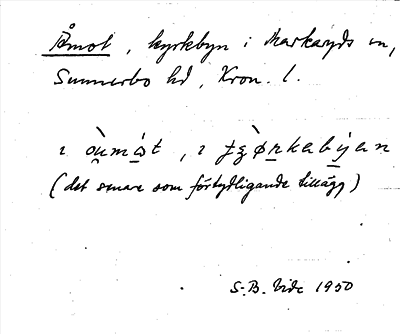 Åmot, kyrkbyn i Markaryds sn,
Sunnerbo hd, Kron. l.
ı òu̯mǻt, ı
(det senare som förtydligande tillägg)
S.-B. Vide 1950